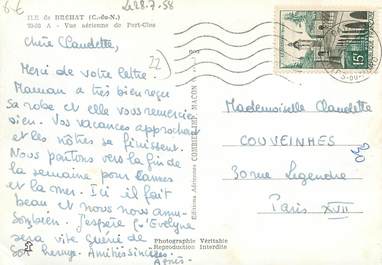 6€
le 28-7-58
ILE de BRÉHAT (C.-du-N.)
20-60 A - Vue aérienne de Port-Clos
Chère Claudette,
22
Merci de votre lettre.
Maman a très bien reçu
sa robe et elle vous remercie
bien. Vos vacances approchent
et les nôtres se finissent.
Nous partons vers la fin de
la semaine pour Cannes
et la mer. Ici il fait
beau et nous nous amu-
sons bien. J'espère q. Evelyne
sera vite guérie de
son Amitiés sincères
Agnès
Photographie Véritable
Reproduction Interdite
Editions Aériennes COMBIER IMP. MACON
15F
Mademoiselle Claudette
COUVEINHES
30 rue Legendre
Paris XVII
30